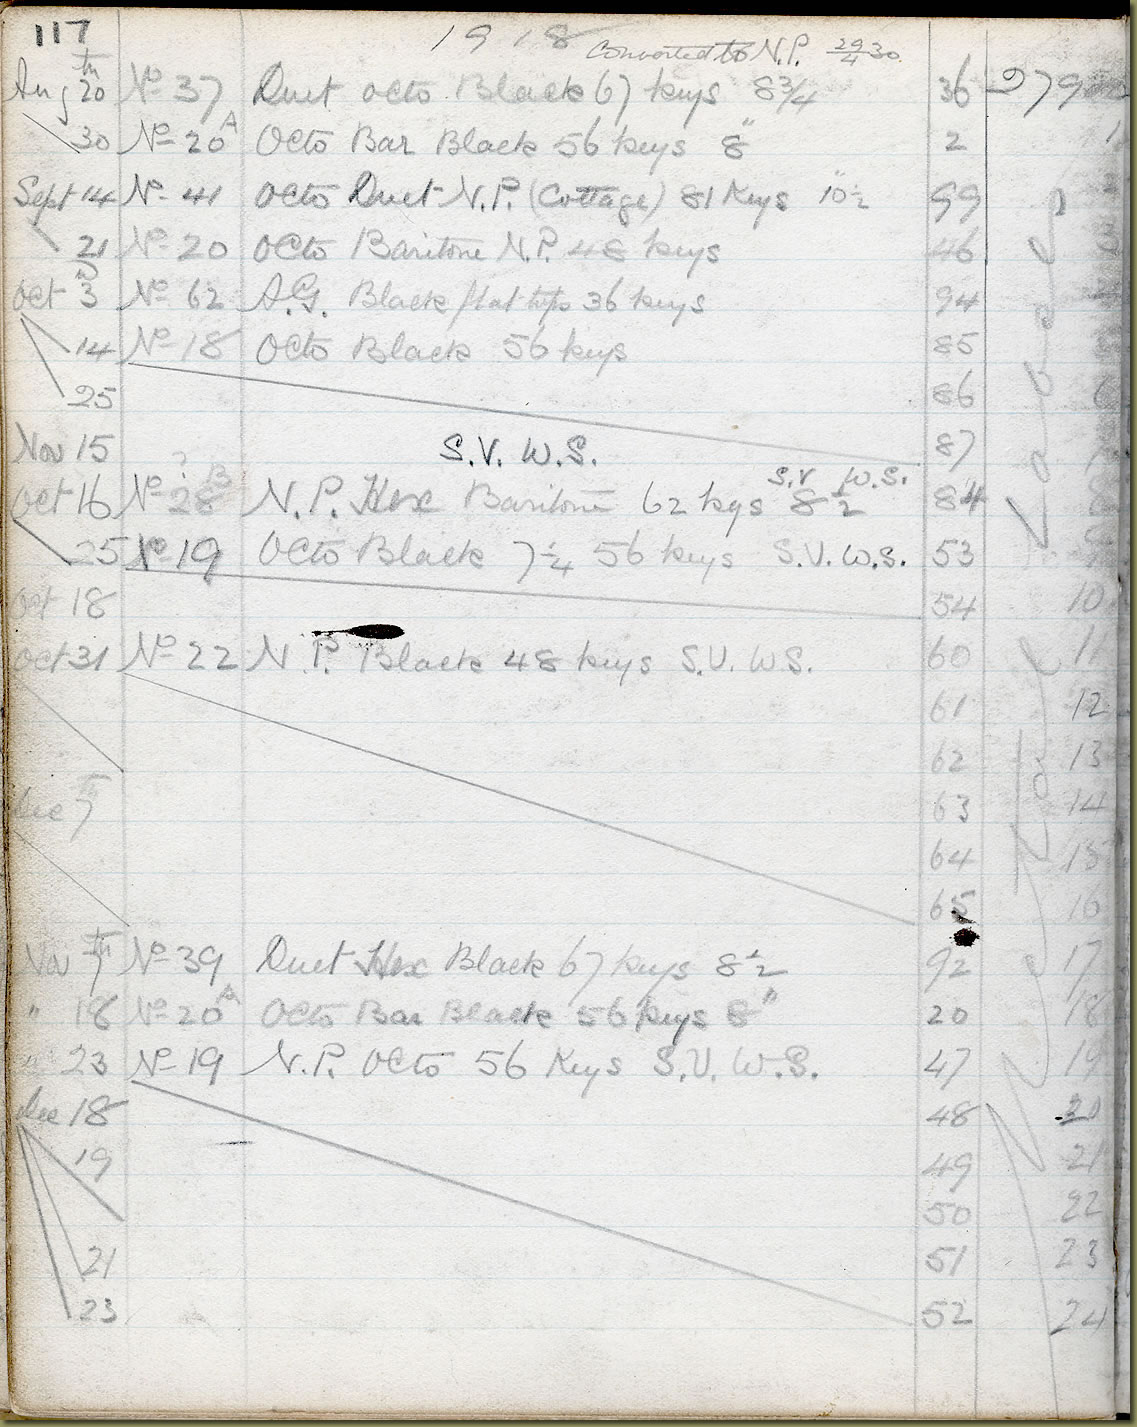 117
1918
Converted to N.P. 29/4 30
Aug 20th No 37 Duet Octo Black 67 keys 8¾ 36 27900
30 No 20A Octo Bar Black 56 keys 8" 2 1
Sept 14 No 41 Octo Duet N.P. (Cottage) 81 Keys 10½" 99 2
21 No 20 Octo Baritone N.P. 48 keys 46 3
Oct 3 No 62 A.G. Black flat top 36 keys 94 4
14 No 18 Octo Black 56 keys 85
25 86 6
Nov 15 S.V. W.S. 87 7
Oct 16 No 28B ? N.P. Hex Baritone 62 keys 8½ S.V. W.S. 84 8
25 No 19 Octo Black 7¼ 56 keys S.V. W.S. 53 9
Oct 18 54 10
Oct 31 No 22 N.P. Black 48 keys S.V. W.S. 60 11
61 12
62 13
Dec 7th 63 14
64 15
65 16
Nov 7th No 39 Duet Hex Black 67 keys 8½ 92 17
" 18 No 20A Octo Bar Black 56 keys 8" 20 18
" 23 No 19 N.P. Octo 56 Keys S.V. W.S. 47 19
Dec 18 48 20
19 49 21
50 22
21 51 23
23 52 24